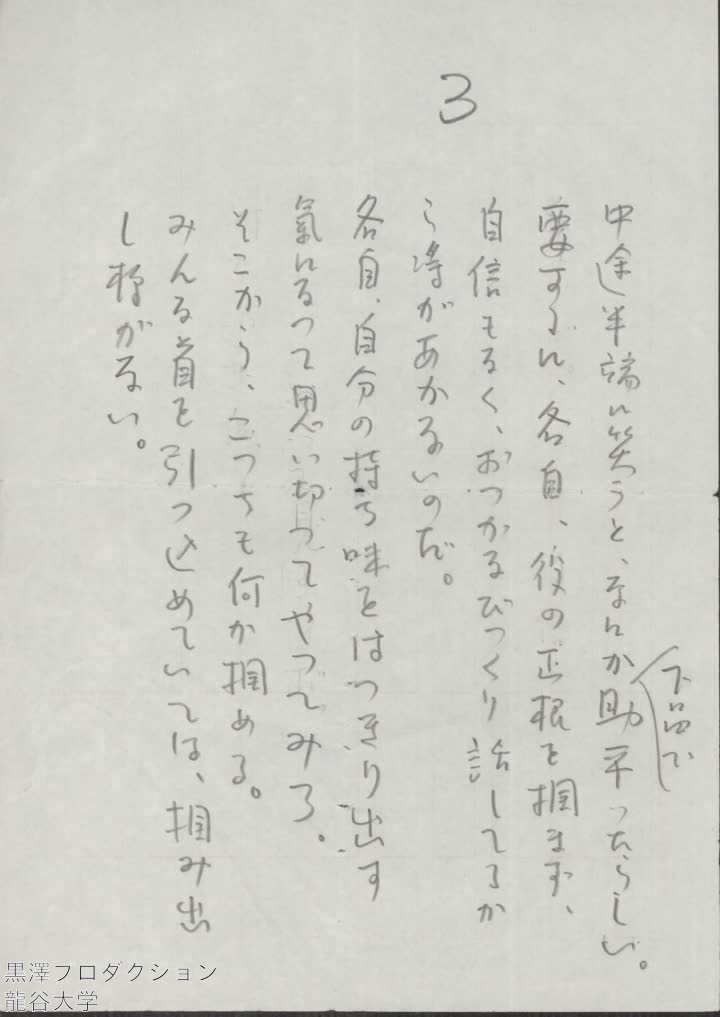 3
中途半端に笑うと、なにか助平ったらしい。
下品で
要するに、各自、役の正根を掴まず、
自信もなく、おっかなびっくり話してるか
ら埒があかないのだ。
各自、自分の持ち味をはっきり出す
氣になって思い切ってやってみろ。
そこから、こっちも何か掴める。
みんな首を引っ込めていては、掴み出
し様がない。
黒澤プロダクション
龍谷大学